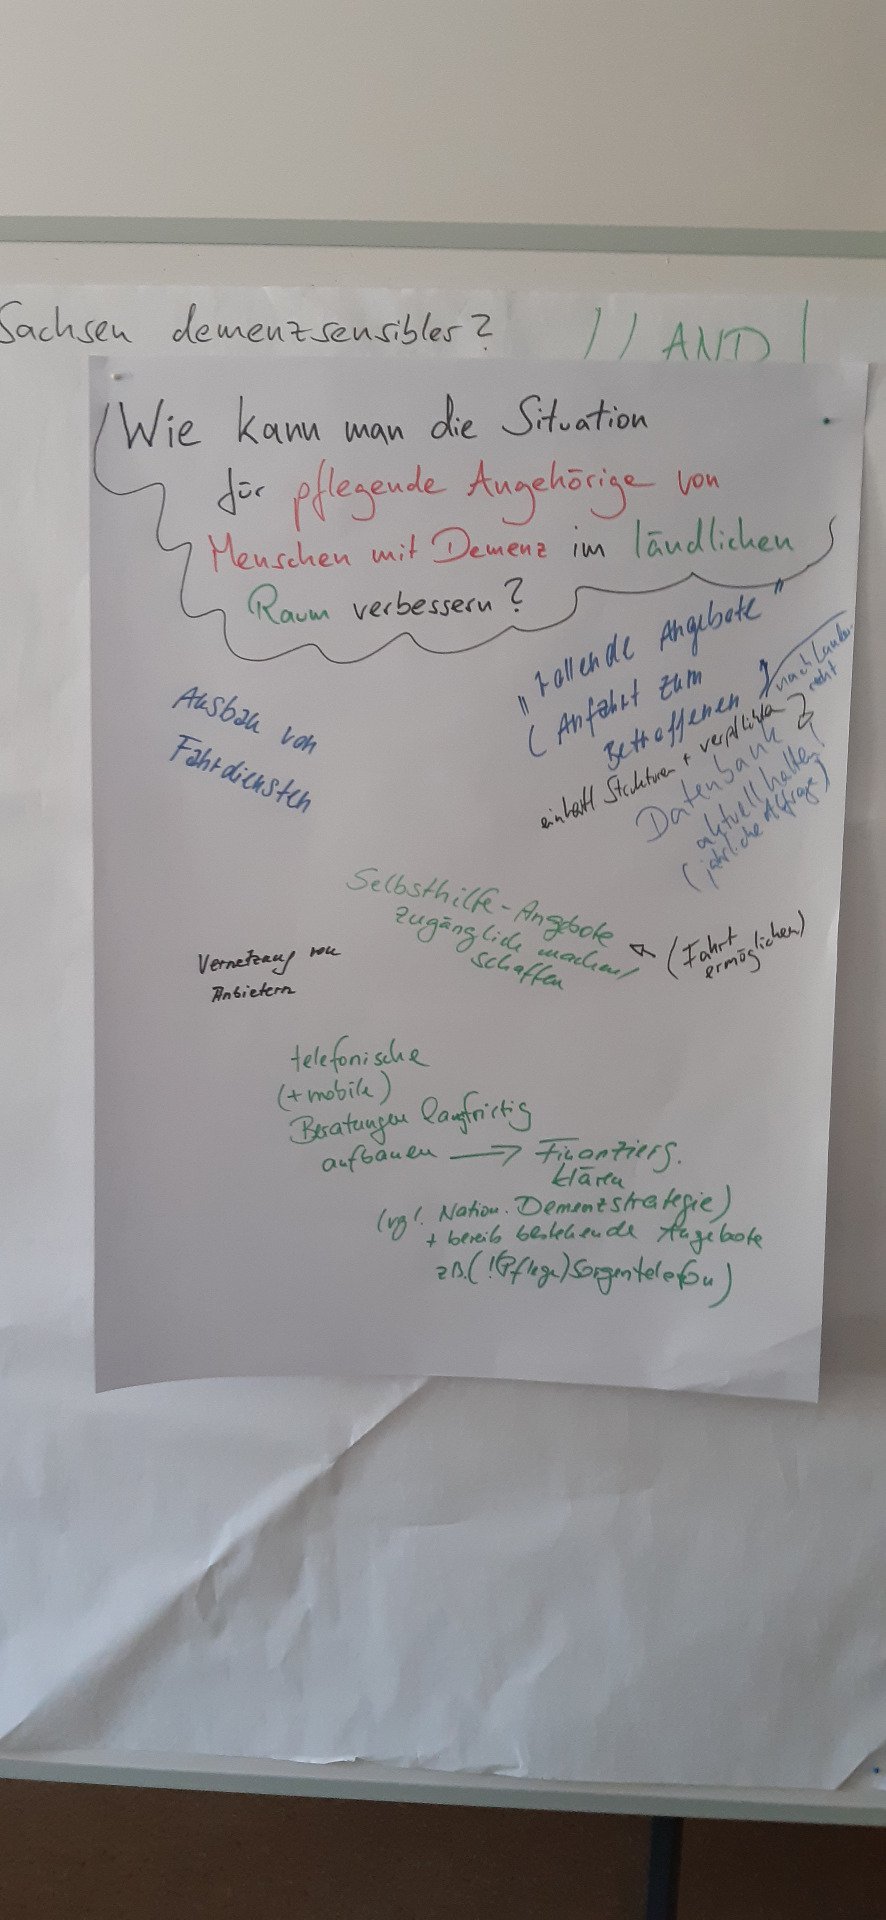 Sachsen demenzsensibler?
AND
Wie kann man die Situation
für pflegende Angehörige von
Menschen mit Demenz im ländlichen
Raum verbessern?
"rollende Angebote"
(Anfahrt zum
Betroffenen)
nach Landes-
recht
einheitl Strukturen + verpflichten
Datenbank
aktuell halten
(jährliche Abfrage)
Ausbau von
Fahrdiensten
Selbsthilfe-Angebote
zugänglich machen/
schaffen
(Fahrt
ermöglichen)
Vernetzung von
Anbietern
telefonische
(+mobile)
Beratungen langfristig
aufbauen → Finanzierg.
klären
(vgl. Nation. Demenzstrategie)
+ bereits bestehende Angebote
zB. (!(Pflege)Sorgentelefon)